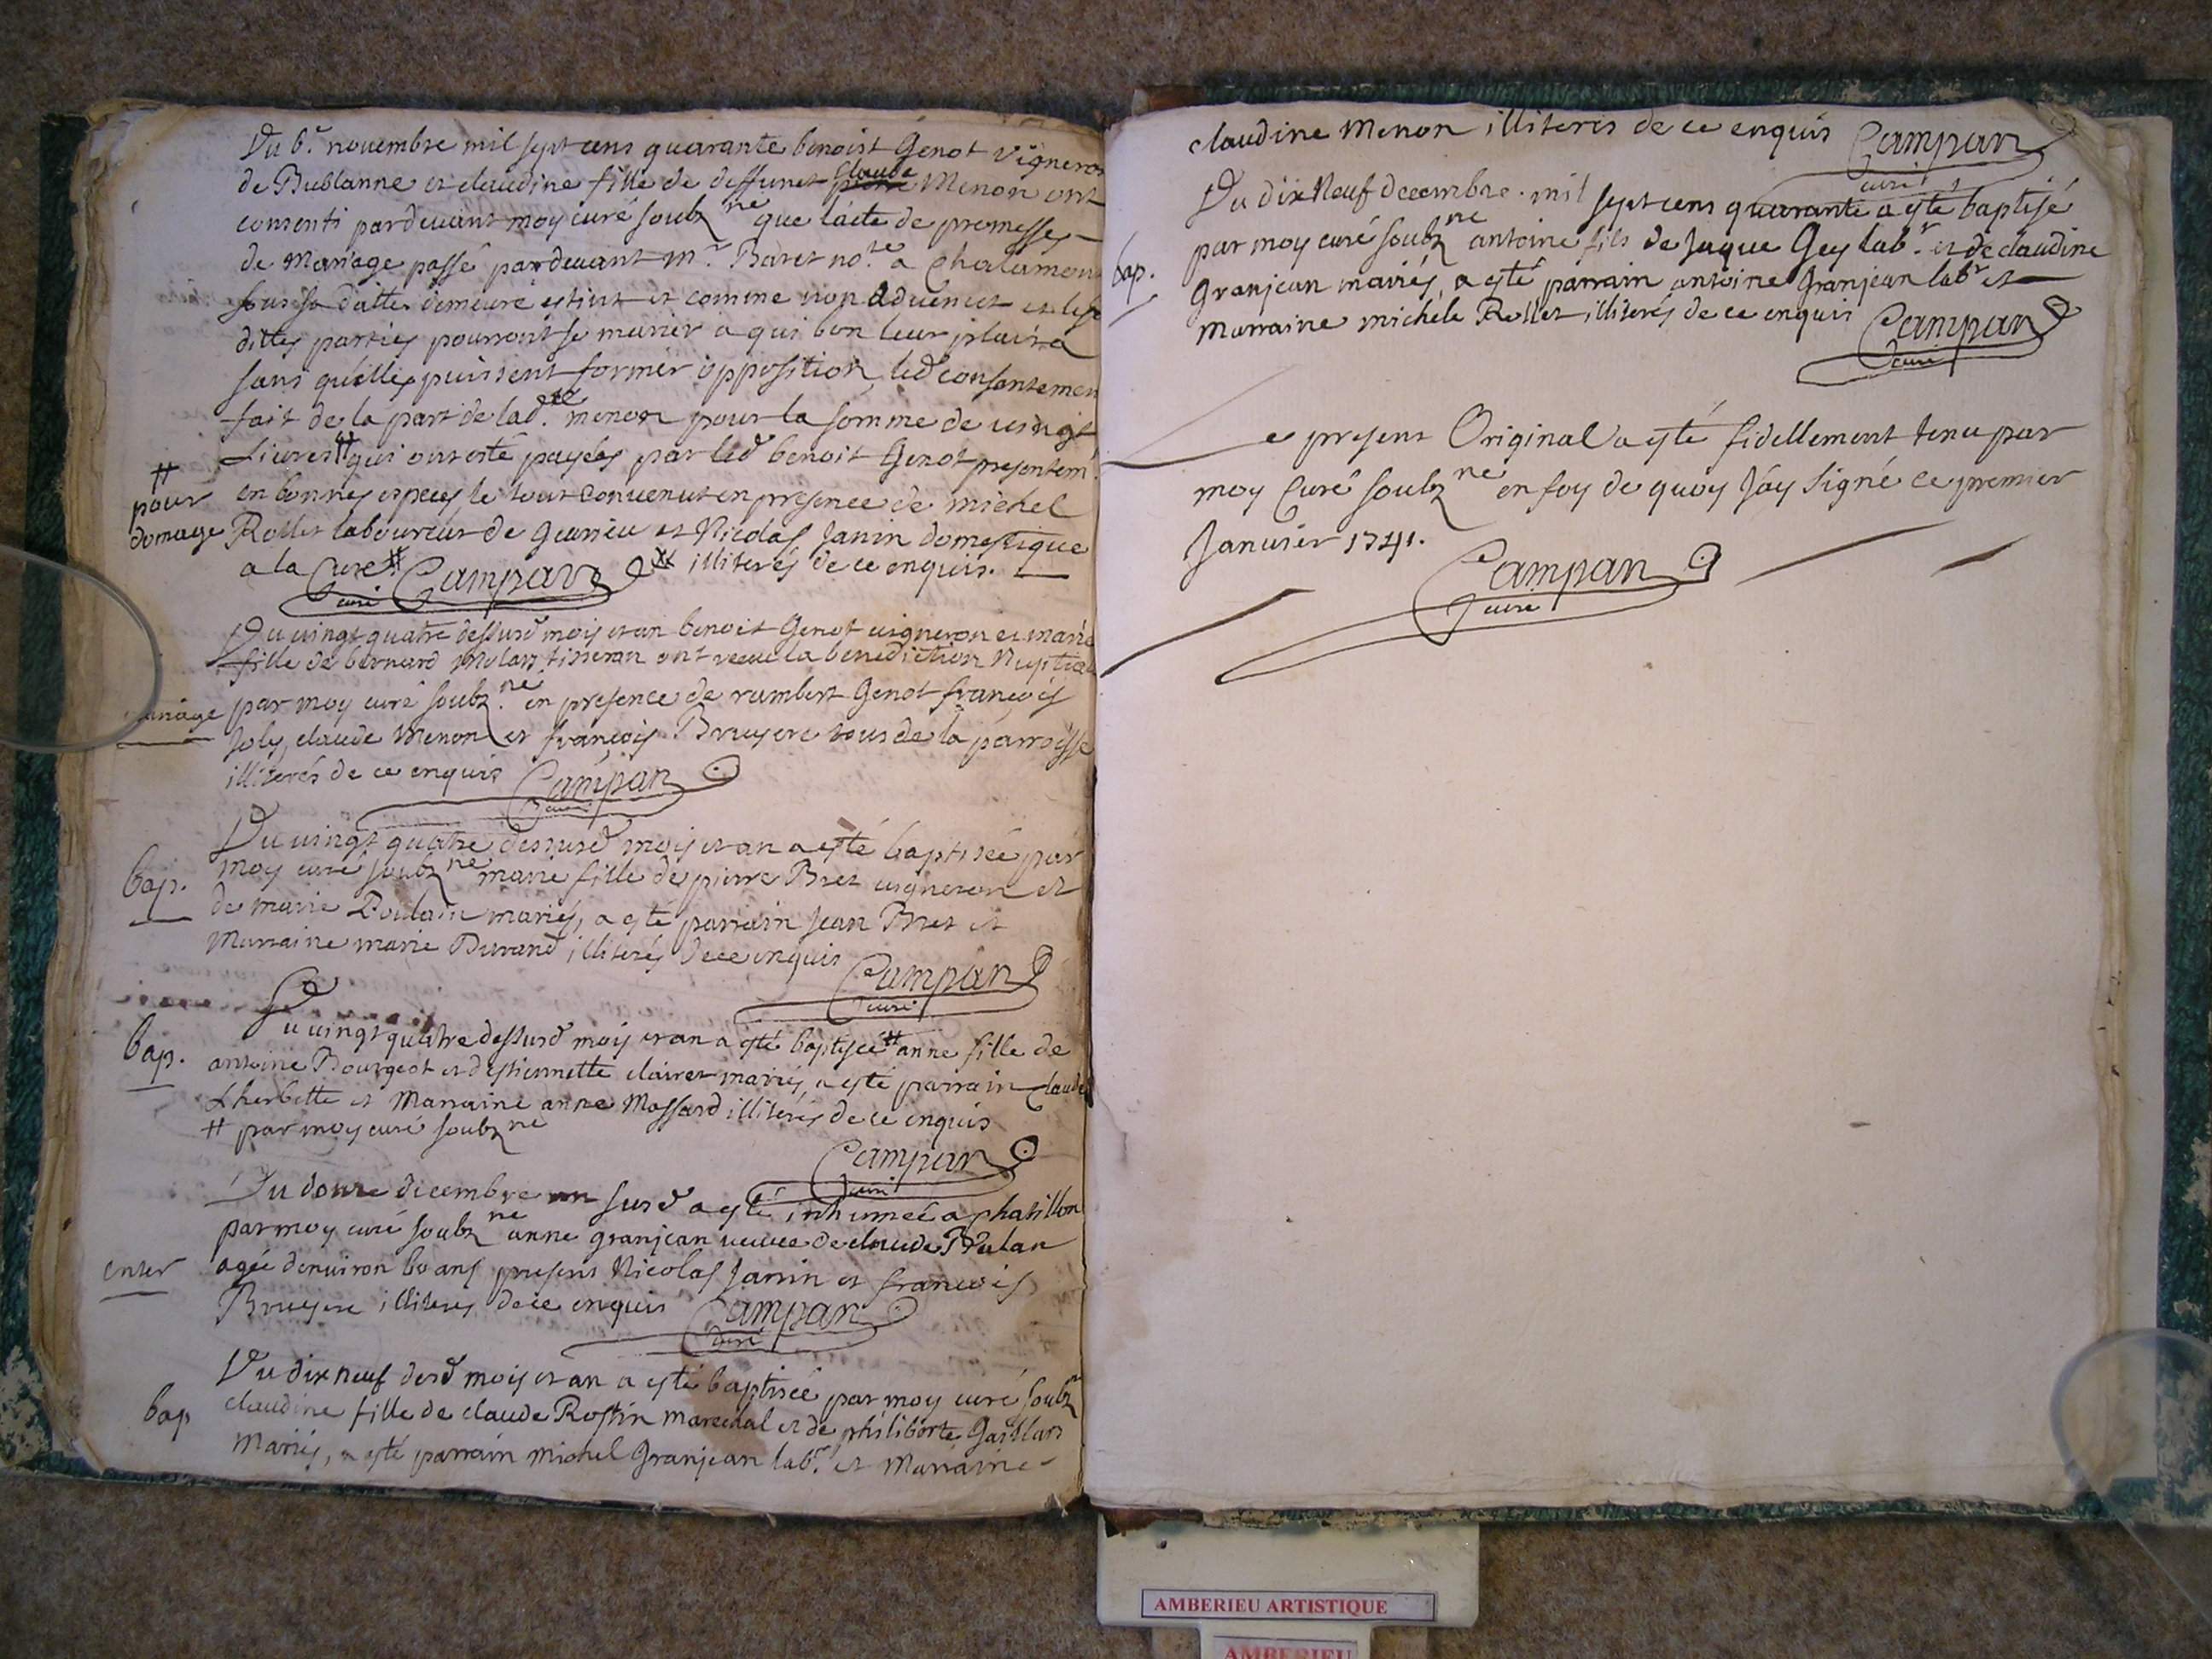 Du 6.e novembre mil sept cens quarante benoist Genot vigneron
de Bublanne et claudine fille de deffunct Claude Menon ont
consenti pardevant moy curé soubz.né que l'acte de promesses
de Mariage passé pardevant m.r Baret no.re a Chalamont
sous sa datte demeure estint et comme non advenct et les
dittes parties pourront se marier a qui bon leur plaira
sans quelles puissent former opposition, led consentement
fait de la part de lad.te menon pour la somme de vingt
Livres # qui ont esté payées par led benoit Genot presentem.
# pour domage
en bonnes especes le tout convenut en presence de michel
Rollet laboureur de Gevrieu et Nicolas Janin domestique
a la Cure # illiterés de ce enquis.
Campan curé
Du vingt quatre dessusd mois et an benoit Genot vigneron et marie
fille de bernard Molan tisseran ont receu la benediction Nuptiale
mariage
par moy curé soubz.né en presence de rambert Genot françois
Joly, claude Menon et françois Bruyere tous de la parroisse
illiterés de ce enquis Campan
curé
Du vingt quatre dessusd mois et an a esté baptisée par
bap.
moy curé soubz né marie fille de pierre Bret vigneron et
de marie Poulain mariés, a esté parrain Jean Bret et
Marraine marie Durand illiterés de ce enquis
Campan
curé
Du vingt quatre dessusd mois et an a esté baptisée # anne fille de
bap.
antoine Bourgeot et d'estiennette clairet mariés a esté parrain Claude
Lherbette et Marraine anne Massard illiterés de ce enquis
# par moy curé soubz né
Campan
curé
Du douze decembre an susd a esté inhumée a chatillon
par moy curé soubz né anne granjean veuve de claude
enter
agée denviron 60 ans present Nicolas Janin et francois
Bruyere illiteres de ce enquis Campan
curé
Du dix neuf desd mois et an a esté baptisée par moy curé soubz né
bap
claudine fille de claude Rostin marechal et de philiberte Gaillard
Mariés, a esté parrain Michel Granjean lab.r et Marraine
claudine Menon illiteres de ce enquis Campan
curé
Du dix Neuf decembre mil sept cens quarante a esté baptisé
par moy curé soubz né antoine fils de Jaque Gey lab.r et de claudine
bap.
Granjean mariés, a esté parrain antoine Granjean lab.r et
Marraine michele Rollet illiterés de ce enquis Campan
curé
Le present Original a esté fidellement tenu par
moy Curé soubz né en foy de quoy J'ay signé ce premier
Janvier 1741.
Campan
curé
AMBERIEU ARTISTIQUE
AMBERIEU